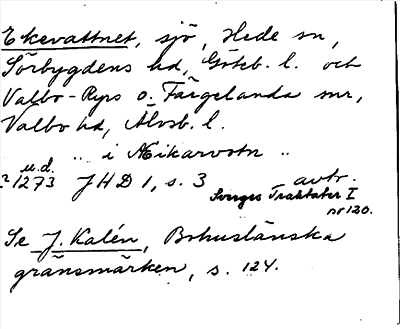 Ekevattnet, sjö, Hede sn,
Sörbygdens hd, Göteb. l. och
Valbo-Ryrs o. Färgelanda snr,
Valbo hd, Älvsb. l.
" i Æikarvotn "
? u.d.
1273 JHD 1, s. 3 avtr.
Sverges Traktater I
nr 120.
Se J. Kalén, Bohuslänska
gränsmärken, s. 124.